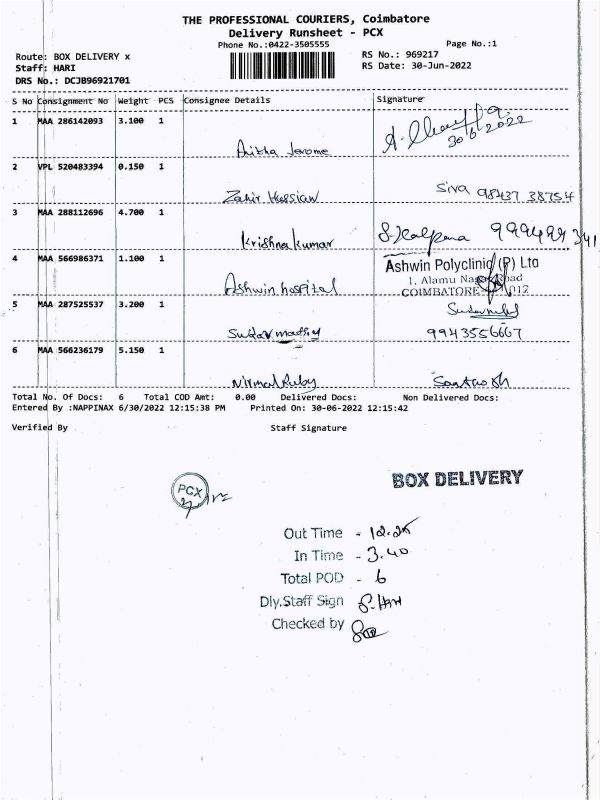 THE PROFESSIONAL COURIERS, Coimbatore
Delivery Runsheet - PCX
Phone No.:0422-3505555
Page No.:1
Route: BOX DELIVERY x
RS No.: 969217
Staff: HARI
RS Date: 30-Jun-2022
DRS No.: DCJB96921701
S No Consignment No Weight PCS Consignee Details Signature
1 MAA 286142093 3.100 1
30/6/2022
Anitha Jerome
2 VPL 520483394 0.150 1
Zahir Hussian Siva 98437 38754
3 MAA 288112696 4.700 1
Krishna kumar S. Kalpana 999499341
4 MAA 566986371 1.100 1
Ashwin Polyclinic (P) Ltd
1, Alamu Road
COIMBATORE 012
Ashwin hospital
5 MAA 287525537 3.200 1
9943556667
6 MAA 566236179 5.150 1
Nirmal Ruby Santhosh
Total No. Of Docs: 6 Total COD Amt: 0.00 Delivered Docs: Non Delivered Docs:
Entered By :NAPPINAX 6/30/2022 12:15:38 PM Printed On: 30-06-2022 12:15:42
Verified By Staff Signature
BOX DELIVERY
PCX
Out Time - 12.25
In Time - 3.40
Total POD - 6
Dly.Staff Sign S. Hari
Checked by